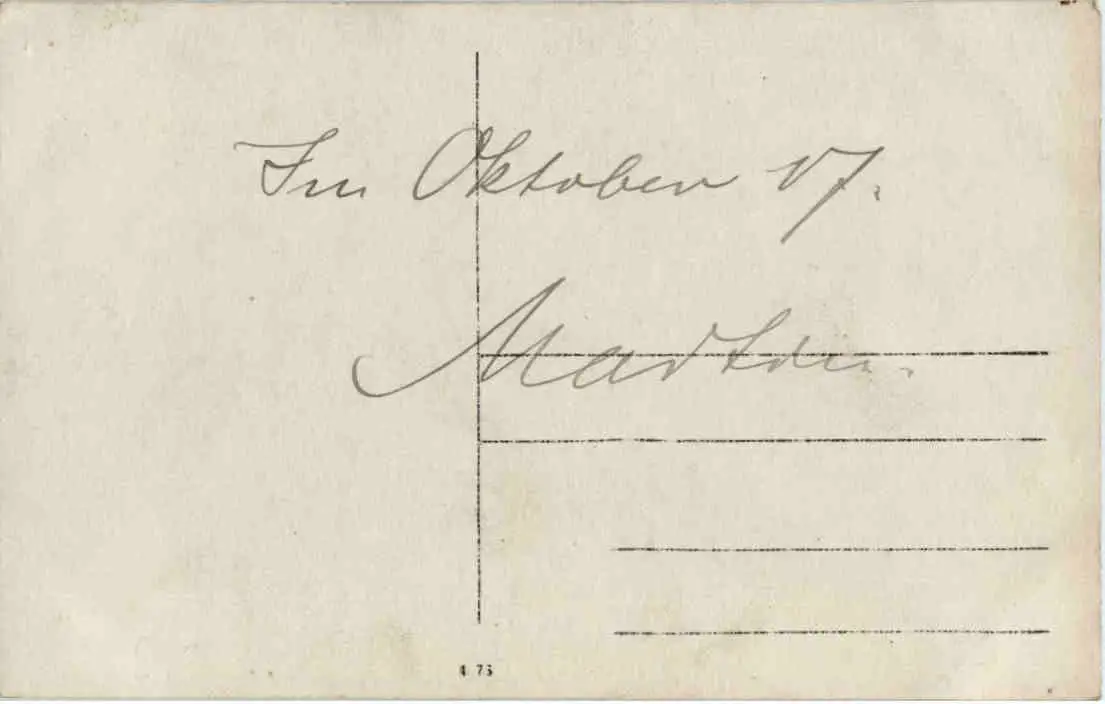 Im Oktober 17.
Martin.
4 75